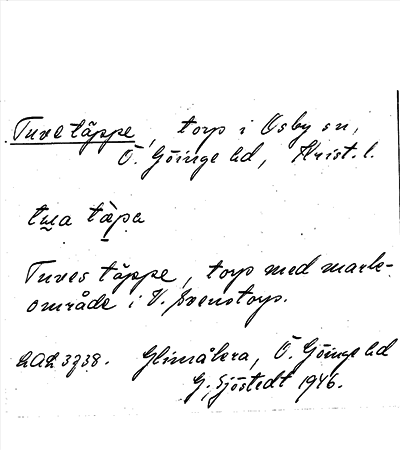 Tuve täppe, torp i Osby sn,
Ö. Göinge hd, Krist. l.
tua täpa
Tuves täppe, torp med mark-
område i V. Svenstorp.
LAL 3738. Glimåkra, Ö. Göinge hd
G. Sjöstedt 1946.